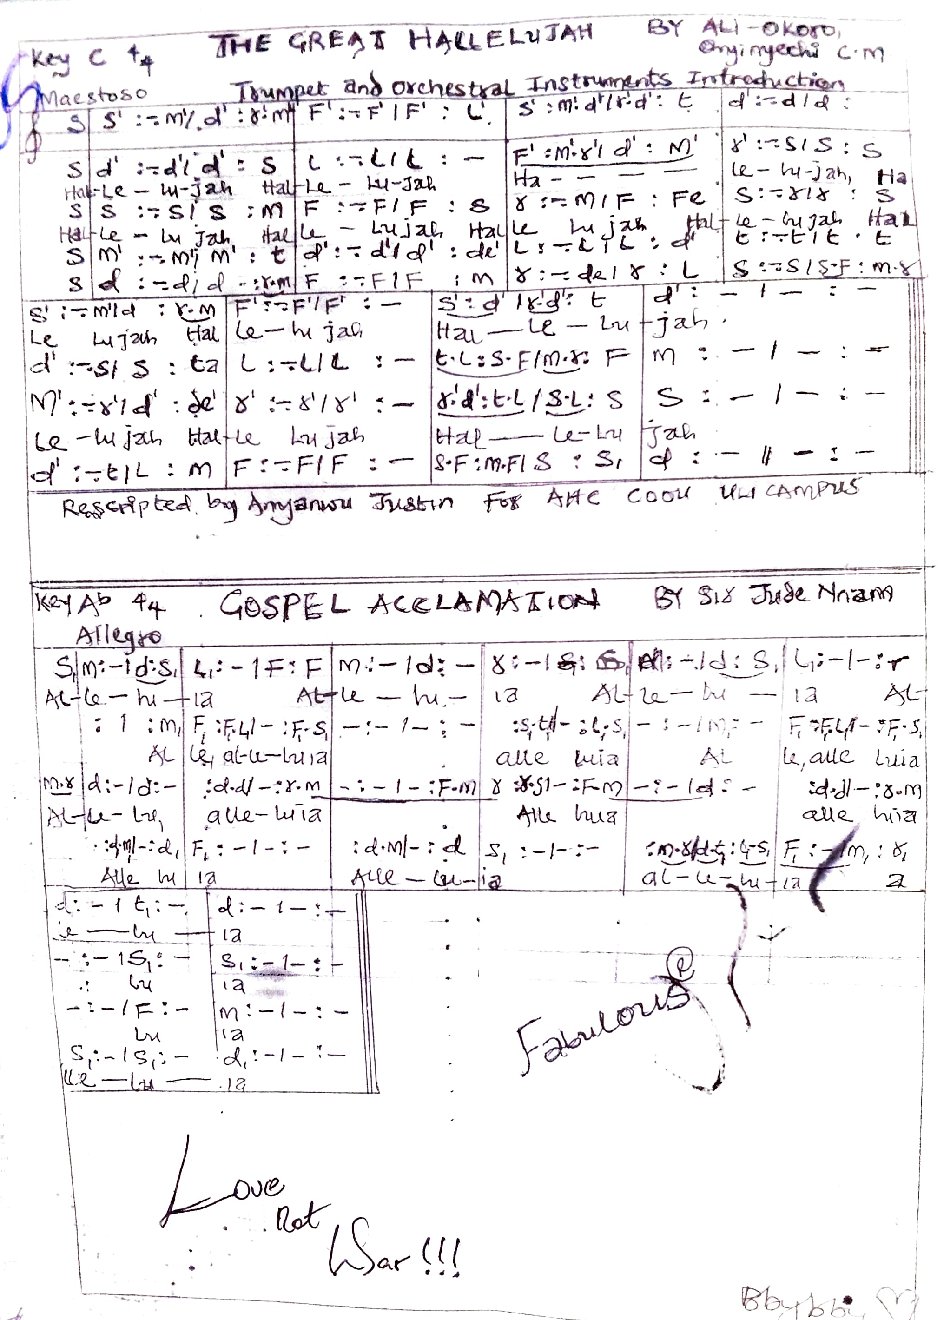 Key C 4/4 THE GREAT HALLELUJAH BY ALI-OKORO,
Onyinyechi C.M
Maestoso Trumpet and Orchestral Instruments Introduction
S S' :-.m'/.d' :r.m' F' :-.F'/F' : L' S':m'.d'/r'.d': t d':-.d/d :
S d' :-.d'/.d' : S L :-.L/L : - F':m'.r'/d' : M' r' :-.S/S : S
Hal-Le-Lu-jah Hal-Le-Lu-Jah Ha - - - - Le-lu-jah, Ha
S S :-.S/S : M F :-.F/F : S r :-.M/F : Fe S :-.r/r : S
Hal-Le-Lu jah Hal Le-Lujah Hal Le Lu jah Hal-le-lu jah Hal
S m' :-.m'/m' : t d' :-.d'/d' : de' L :-.L/L : d' t :-.t/t . t
S d :-.d/d -:r.m F :-.F/F : m r :-.de/r : L S :-.S/S.F : m.r
S' :-.m'/d : r.m F' :-.F'/F' : - S' : d'/r'.d': t d' : - / - : -
Le Lujah Hal Le-lu jah Hal — Le - Lu - jah.
d' :-.S/S : ta L :-.L/L : - t.L:S.F/m.r: F m : - / - : -
M' :-.r'/d' : de' r' :-.r'/r' : - r'.d':t.L/S.L: S S : - / - : -
Le-lu jah Hal-le Lu jah Hal — Le-Lu jah
d' :-.t/L : m F :-.F/F : - S.F:m.F/S : S, d : - // - : -
Rescripted by Anyanwu Justin For AHC COOU ULI CAMPUS
Key Ab 4/4 GOSPEL ACCLAMATION BY Sir Jude Nnam
Allegro
S, m:-/d:S, L,:-/F:F m:-/d:- r:-/ :-/d:S, L,:-/-:r
AL-Le-lu-ia AL-le-lu-ia AL-le-lu-ia AL-
: / :m, F,:F,L,/-:F,.S, -:-/-:- :S,.t,/-:L,.S, -:-/m,:- F,:F,L,/-:F,.S,
AL le, al-le-luia alle luia AL le, alle luia
m.r d:-/d:- :d.d/-:r.m -:-/-:F.m r :r.S/-:F.m -:-/d:- :d.d/-:r.m
AL-Le-lu, alle-luia Alle luia alle luia
:d,.m,/-:d, F,:-/-:- :d.m/-:d S,:-/-:- :m.r/d.t,:L,.S, F,:-/m,:r,
Alle lu ia Alle-lu-ia al-le-lu-ia a
d:-/t,:- d:-/-:-
le — lu — ia
-:-/S,:- S,:-/-:-
lu ia
-:-/F:- m:-/-:-
lu ia
S,:-/S,:- d,:-/-:-
lle-lu — ia
Fabulous
Love
not
War!!!